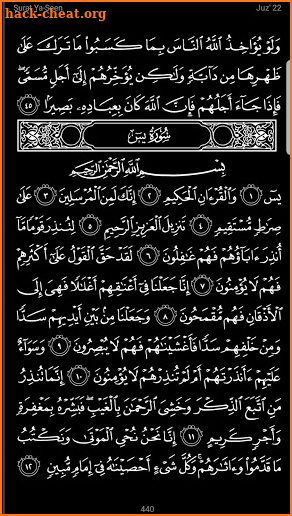 Surat Ya-Seen Juz' 22
وَلَوْ يُؤَاخِذُ ٱللَّهُ ٱلنَّاسَ بِمَا كَسَبُوا۟ مَا تَرَكَ عَلَىٰ
ظَهْرِهَا مِن دَآبَّةٍ وَلَـٰكِن يُؤَخِّرُهُمْ إِلَىٰٓ أَجَلٍ مُّسَمًّى ۖ
فَإِذَا جَآءَ أَجَلُهُمْ فَإِنَّ ٱللَّهَ كَانَ بِعِبَادِهِۦ بَصِيرًۢا ٤٥
سُورَةُ يسٓ
بِسْمِ ٱللَّهِ ٱلرَّحْمَـٰنِ ٱلرَّحِيمِ
يسٓ ١ وَٱلْقُرْءَانِ ٱلْحَكِيمِ ٢ إِنَّكَ لَمِنَ ٱلْمُرْسَلِينَ ٣ عَلَىٰ
صِرَٰطٍ مُّسْتَقِيمٍ ٤ تَنزِيلَ ٱلْعَزِيزِ ٱلرَّحِيمِ ٥ لِتُنذِرَ قَوْمًا مَّآ
أُنذِرَ ءَابَآؤُهُمْ فَهُمْ غَـٰفِلُونَ ٦ لَقَدْ حَقَّ ٱلْقَوْلُ عَلَىٰٓ أَكْثَرِهِمْ
فَهُمْ لَا يُؤْمِنُونَ ٧ إِنَّا جَعَلْنَا فِىٓ أَعْنَـٰقِهِمْ أَغْلَـٰلًا فَهِىَ إِلَى
ٱلْأَذْقَانِ فَهُم مُّقْمَحُونَ ٨ وَجَعَلْنَا مِنۢ بَيْنِ أَيْدِيهِمْ سَدًّا
وَمِنْ خَلْفِهِمْ سَدًّا فَأَغْشَيْنَـٰهُمْ فَهُمْ لَا يُبْصِرُونَ ٩ وَسَوَآءٌ
عَلَيْهِمْ ءَأَنذَرْتَهُمْ أَمْ لَمْ تُنذِرْهُمْ لَا يُؤْمِنُونَ ١٠ إِنَّمَا تُنذِرُ
مَنِ ٱتَّبَعَ ٱلذِّكْرَ وَخَشِىَ ٱلرَّحْمَـٰنَ بِٱلْغَيْبِ ۖ فَبَشِّرْهُ بِمَغْفِرَةٍ
وَأَجْرٍ كَرِيمٍ ١١ إِنَّا نَحْنُ نُحْىِ ٱلْمَوْتَىٰ وَنَكْتُبُ
مَا قَدَّمُوا۟ وَءَاثَـٰرَهُمْ ۚ وَكُلَّ شَىْءٍ أَحْصَيْنَـٰهُ فِىٓ إِمَامٍ مُّبِينٍ ١٢
440
hack-cheat.org
hack-cheat.org